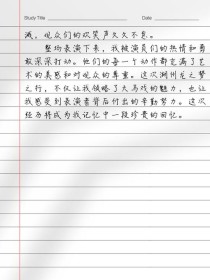 Study Title
Date
减，观众们的欢笑声久久不息。
整场表演下来，我被演员们的热情和勇
敢深深打动。他们的每一个动作都充满了艺
术的美感和对观众的尊重。这次涠州龙之梦
之行，不仅让我领略了大马戏的魅力，也让
我感受到表演者背后付出的辛勤努力。这次
经历将成为我记忆中一段珍贵的回忆。